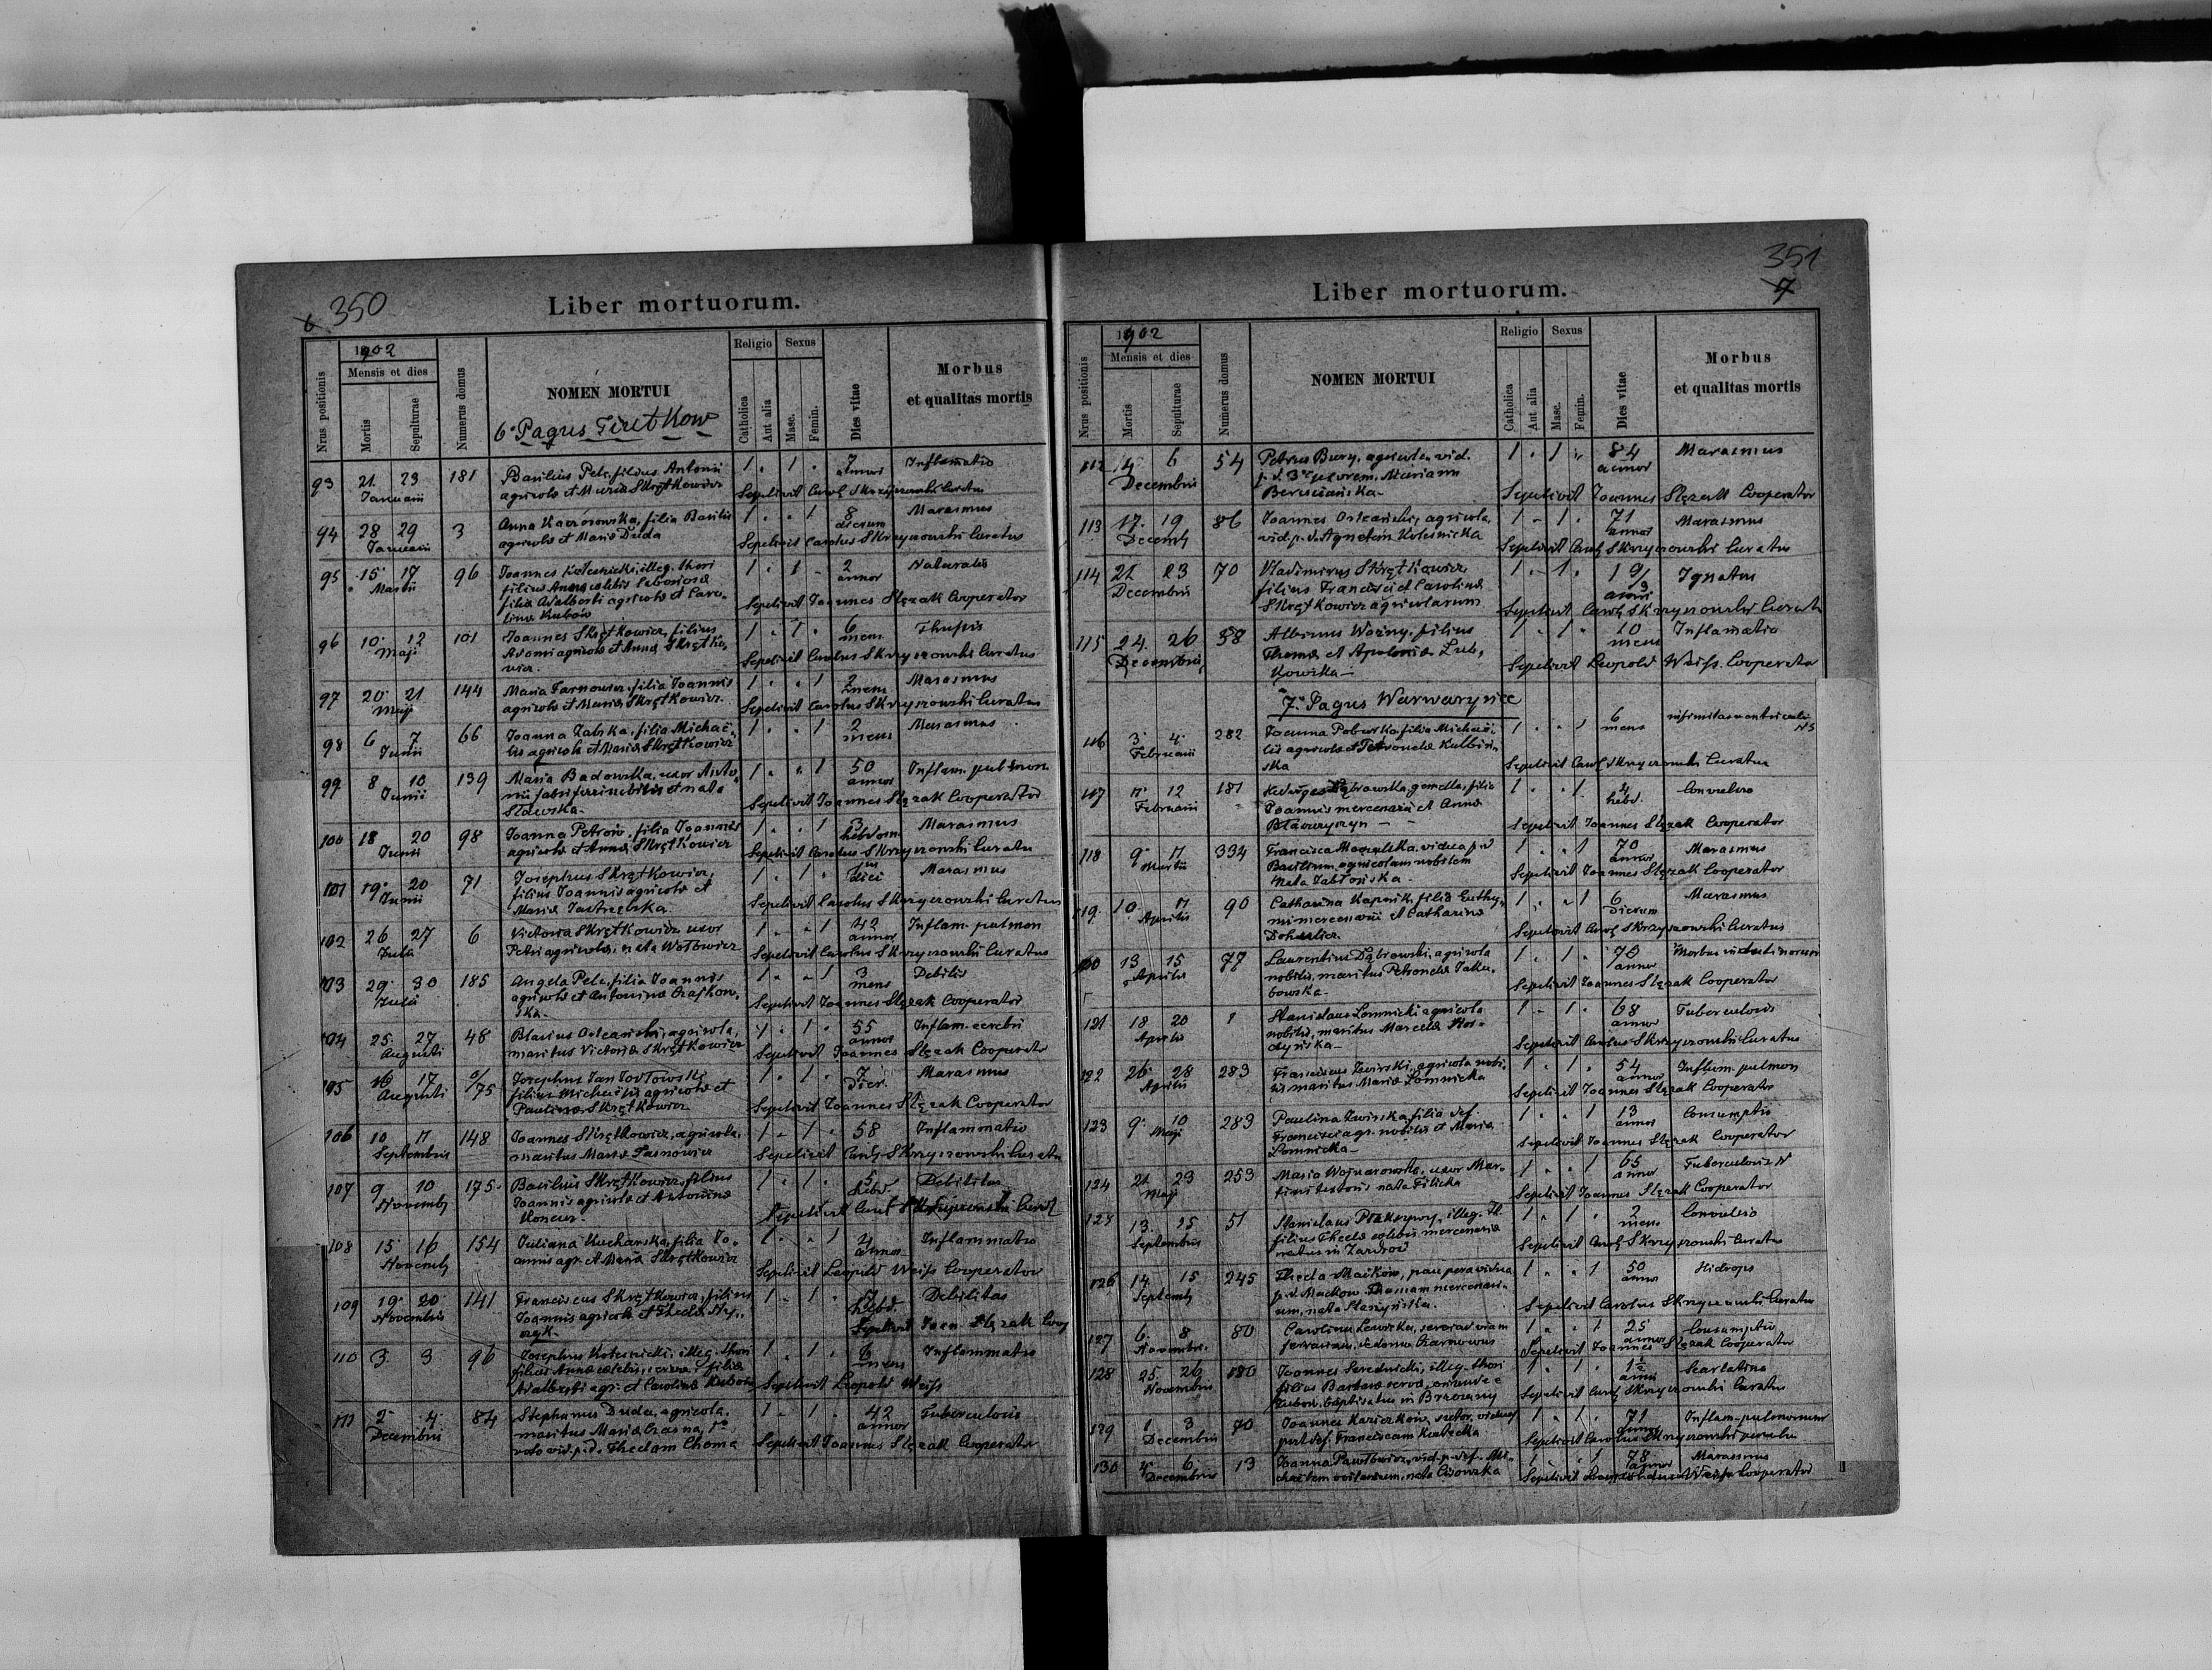 6 350
Liber mortuorum.
Nrus positionis
1902
Mensis et dies
Mortis
Sepulturae
Numerus domus
NOMEN MORTUI
6. Pagus
Religio
Catholica
Aut alia
Sexus
Masc.
Femin.
Dies vitae
Morbus
et qualitas mortis
93 21. 23 181 Basilius Pelc, filius Antonii 1 . 1 . 7 Inflamatio
Januarii agricolae et Mariae Skrętkowicz annor
Sepelivit Carol Skrzyszowski Curatus
94 28 29 3 Anna filia Basilii 1 . . 1 8 Marasmus
Januarii agricolae et Mariae Duda dierum
Sepelivit Carolus Skrzyszowski Curatus
95 15 17 96 Joannes Kolesnicki, illeg. thori 1 . 1 . 2 Naturalis
Martii filius Annae caelebis annor
filiae Adalberti agricolae et Caro-
linae Kubów
Sepelivit Joannes Ślęzak Cooperator
96 10 12 101 Joannes Skrętkowicz, filius 1 . 1 . 6 Thussis
Maji Adami agricolae et Annae Skrętko- mens
wicz.
Sepelivit Carolus Skrzyszowski Curatus
97 20 21 144 Maria Tarnowicz, filia Joannis 1 . . 1 2 Marasmus
Maji agricolae et Mariae Skrętkowicz. mens
Sepelivit Carolus Skrzyszowski Curatus
98 6 7 66 Joanna Zabska, filia Michaë- 1 . . 1 2 Marasmus
Junii lis agricolae et Mariae Skrętkowicz mens
99 8 10 139 Maria Badowska, uxor Anto- 1 . . 1 50 Inflam. pulmon
Junii nii fabri ferri nobilis et nata annor
Sepelivit Joannes Ślęzak Cooperator
100 18 20 98 Joanna Petrów, filia Joannis 1 . . 1 3 Marasmus
Junii agricolae et Annae Skrętkowicz hebdom
Sepelivit Carolus Skrzyszowski Curatus
101 19 20 71 Josephus Skrętkowicz, 1 . 1 . Marasmus
Junii filius Joannis agricolae et diei
Mariae Jastrzębska
Sepelivit Carolus Skrzyszowski Curatus
102 26 27 6 Victoria Skrętkowicz uxor 1 . . 1 42 Inflam. pulmon
Julii Petri agricolae, nata Wołowicz annor
Sepelivit Carolus Skrzyszowski Curatus
103 29 30 185 Angela Pelc, filia Joannis 1 . . 1 3 Debilis
Julii agricolae et Antoninae Czajkow- mens
ska.
Sepelivit Joannes Ślęzak Cooperator
104 25 27 48 Blasius agricola, 1 . 1 . 55 Inflam. cerebri
Augusti maritus Victoriae Skrętkowicz annor
Sepelivit Joannes Ślęzak Cooperator
105 16 17 Josephus 1 . 1 . 7 Marasmus
Augusti 75 filius Michaëlis agricolae et dier.
Paulinae Skrętkowicz
Sepelivit Joannes Ślęzak Cooperator
106 10 11 148 Joannes Skrętkowicz, agricola, 1 . 1 . 58 Inflammatio
Septembris maritus Mariae Tarnowicz
Sepelivit Carol Skrzyszowski Curatus
107 9 10 175 Basilius Skrętkowicz, filius 1 . 1 . 5 Debilitas
Novemb Joannis agricolae et Antoninae hebd.
Koncur.
108 15 16 154 Juliana Kucharska, filia Jo- 1 . . 1 4 Inflammatio
Novemb annis agr. et Mariae Skrętkowicz annor
Sepelivit Leopold Weiss Cooperator
109 19 20 141 Franciscus Skrętkowicz, filius 1 . 1 . Debilitas
Novembris Joannis agricolae et Theclae hebd.
Sepelivit Joan. Ślęzak Coop
110 3 3 96 Josephus Kolesnicki, illeg. thori 1 . 1 . 6 Inflammatio
filius Annae caelebis, filiae mens
Adalberti agr. et Carolinae Kubów
Sepelivit Leopold Weiss
111 2 4 84 Stephanus Duda, agricola, 1 . 1 . 42 Tuberculosis
Decembris maritus Mariae annor
voto vid. p. d. Theclam Choma
Sepelivit Joannes Ślęzak Cooperator
351
7
Liber mortuorum.
Nrus positionis
1902
Mensis et dies
Mortis
Sepulturae
Numerus domus
NOMEN MORTUI
Religio
Catholica
Aut alia
Sexus
Masc.
Femin.
Dies vitae
Morbus
et qualitas mortis
112 6 54 Petrus Bury, agricola, vid. 1 . 1 . 84 Marasmus
Decembris uxorem, Mariam annor
Sepelivit Joannes Ślęzak Cooperator
113 17 19 86 Joannes agricola, 1 . 1 . 71 Marasmus
Decemb vid. p. d. Agnetem Kolesnicka annor
Sepelivit Carol Skrzyszowski Curatus
114 21 23 70 Vladimirus Skrętkowicz, 1 . 1 . Ignotus
Decembris filius Francisci et Carolinae
Skrętkowicz agricolarum
Sepelivit Carol Skrzyszowski Curatus
115 24 26 58 Albinus Woźny, filius 1 . 1 . 10 Inflamatio
Decembris Thomae et Apoloniae mens
Sepelivit Leopold Weiss Cooperator
7. Pagus Warwaryńce
116 3 4 282 Joanna filia Michaë- 1 . . 1 6
Februarii lis agricolae et Petronelae mens
Sepelivit Carol Skrzyszowski Curatus
117 11 12 181 Hedviges Dąbrowska, gemella, filia 1 . . 1 4 Convulsio
Februarii Joannis mercenarii et Annae hebd.
Sepelivit Joannes Ślęzak Cooperator
118 9 11 334 Francisca vidua p. d. 1 . . 1 70 Marasmus
Martii Basilium agricolam nobilem annor
nata Jabłońska
Sepelivit Joannes Ślęzak Cooperator
119 10 11 90 Catharina Kapnik, filia Euthy- 1 . . 1 6 Marasmus
Aprilis mi mercenarii et Catharinae dierum
Sepelivit Carol Skrzyszowski Curatus
120 13 15 77 Laurentius Dąbrowski, agricola 1 . 1 . 70 Morbus intestinorum
Aprilis nobilis, maritus Petronelae Jaku- annor
bowska
Sepelivit Joannes Ślęzak Cooperator
121 18 20 Stanislaus Łomnicki agricola 1 . 1 . 68 Tuberculosis
Aprilis nobilis, maritus Marcellae annor
Sepelivit Carolus Skrzyszowski Curatus
122 26 28 283 Franciscus Zwirski, agricola nobi- 1 . 1 . 54 Inflam. pulmon
Aprilis lis maritus Mariae Łomnicka annor
Sepelivit Joannes Ślęzak Cooperator
123 9 10 283 Paulina Zwirska, filia def. 1 . . 1 13 Consumptio
Maji Francisci agr. nobilis et Mariae annor
Łomnicka
Sepelivit Joannes Ślęzak Cooperator
124 21 23 253 Maria Wojnarowska, uxor Mar- 1 . . 1 65 Tuberculosis
Maji tini textoris nata Filicka annor
Sepelivit Joannes Ślęzak Cooperator
125 13 15 51 Stanislaus illeg. th. 1 . 1 . 2 Convulsio
Septembris filius Theclae caelebis mercenariae mens
natus in
Sepelivit Carol Skrzyszowski Curatus
126 14 15 245 Thecla Maćków, paupera vidua 1 . . 1 50 Hidrops
Septemb p. d. Maćkow Thomam mercenari- annor
um, nata
Sepelivit Carolus Skrzyszowski Curatus
127 6 8 80 Carolina Lewicka, 1 . . 1 25 Consumptio
Novembris annor
Sepelivit Joannes Ślęzak Cooperator
128 25 26 180 Joannes Serednicki, illeg. thori 1 . 1 . 1½ Scarlatina
Novembris filius Barbarae servae, oriundae e anni
baptisatus in Brzeżany
Sepelivit Carol Skrzyszowski Curatus
129 1 3 70 Joannes sutor, viduus 1 . 1 . 71 Inflam. pulmonum
Decembris post def. Franciscam annor
Sepelivit Carolus Skrzyszowski
130 4 6 13 Joanna Pawłowicz, vid. p. def. Mi- 1 . . 1 78 Marasmus
Decembris chaëlem nata annor
Sepelivit Leopoldus Weiss Cooperator